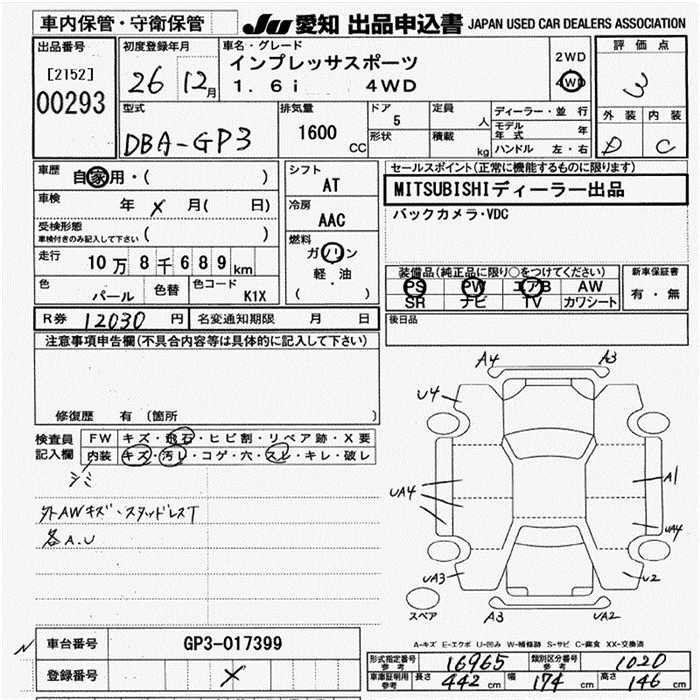 車内保管・守衛保管
JU 愛知 出品申込書 JAPAN USED CAR DEALERS ASSOCIATION
出品番号
[2152]
00293
初度登録年月
26 12月
車名・グレード
インプレッサスポーツ
1.6i 4WD
2WD
4WD
評価点
3
外装 内装
D C
型式
DBA-GP3
排気量
1600 CC
ドア
5
形状
定員
人
積載
kg
ディーラー・並行
モデル年式 年
ハンドル 左・右
車歴
自家用・( )
車検 年 × 月( 日)
受検形態
車検付きのみ記入して下さい ( )
走行 10万8千689km
色 パール 色替 色コード K1X
シフト
AT
冷房
AAC
燃料
ガソリン
軽・油
( )
セールスポイント(正常に機能するものに限ります)
MITSUBISHIディーラー出品
バックカメラ・VDC
装備品(純正品に限り○をつけてください)
PS PW エアB AW
SR ナビ TV カワシート
新車保証書
有・無
後日品
R券 12030 円 名変通知期限 月 日
注意事項申告欄(不具合内容等は具体的に記入して下さい)
修復歴 有 (箇所 )
検査員記入欄
FW キズ・飛石・ヒビ割・リペア跡・X要
内装 キズ・汚レ・コゲ・穴・スレ・キレ・破レ
シミ
外AWキズ・スタッドレスT
各A.U
A4 A3
U4
A1
UA4
UA4
UA3 U2
スペア
A3 UA2
A-キズ E-エクボ U-凹み W-補修跡 S-サビ C-腐食 XX-交換済
車台番号 GP3-017399
登録番号 ×
形式指定番号 参考 16965 類別区分番号 参考 1020
車庫証明用 参考 長さ 442 cm 幅 174 cm 高さ 146 cm